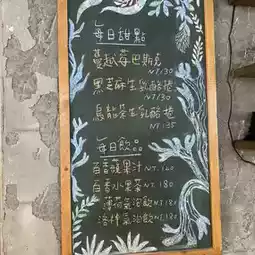 每日甜點
蔓越莓巴斯克
NT.130
黑芝麻生乳酪捲
NT.130
烏龍茶生乳酪捲
NT.135
每日飲品
百香蘋果汁 NT.160
百香水果茶 NT.180
薄荷氣泡飲 NT.180
洛神氣泡飲 NT.180